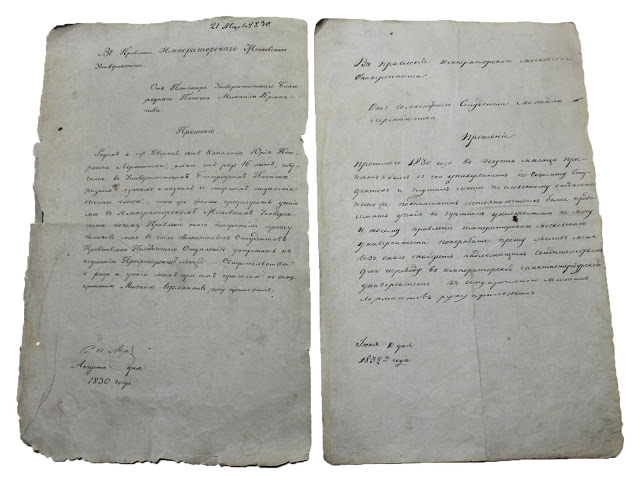 21 Августа 1830
Въ Правленіе Императорскаго Московскаго
Университета.
Отъ Пансіонера Университетскаго Благо
роднаго Пансіона Михаила Лермон
това.
Прошеніе
Родомъ я изъ Дворянъ, сынъ Капитана Юрія Пет
ровича Лермантова; имѣю отъ роду 16 лѣтъ; обу
чался въ Университетскомъ Благородномъ Пансіонѣ
разнымъ языкамъ и наукамъ въ старшемъ отдѣленіи
высшаго класса; нынѣ же желаю продолжать ученіе
мое въ Императорскомъ Московскомъ Универси
тетѣ, почему Правленіе онаго покорнѣйше прошу
включить меня въ число своекоштныхъ Студентовъ
Нравственно Политическаго Отдѣленія, допустить къ
слушанію Профессорскихъ лекцій. Свидѣтельства
о родѣ и ученіи моемъ при семъ прилагаю. Къ сему
прошенію Михаилъ Лермантовъ руку приложилъ.
Августа дня
1830 года
Въ правленіе Императорскаго Московскаго
Университета
Отъ своекоштнаго Студента Михайла
Лермантова
Прошеніе
Прошлаго 1830 года въ Августѣ мѣсяцѣ при
нятъ былъ я въ сей университетъ по экзамену Сту
дентомъ и слушалъ лекціи по словесному отдѣленію
нынѣ же по домашнимъ обстоятельствамъ болѣе продо
лжать ученія въ здѣшнемъ университетѣ не могу
и посему правленіе императорскаго московскаго
университета покорнѣйше прошу, уволивъ меня
изъ онаго, снабдить надлежащимъ свидѣтельствомъ
для перевода въ императорской санктпетербургской
университетъ. Къ сему прошенію Михаилъ
Лермантовъ руку приложилъ
Іюня дня
1832го года